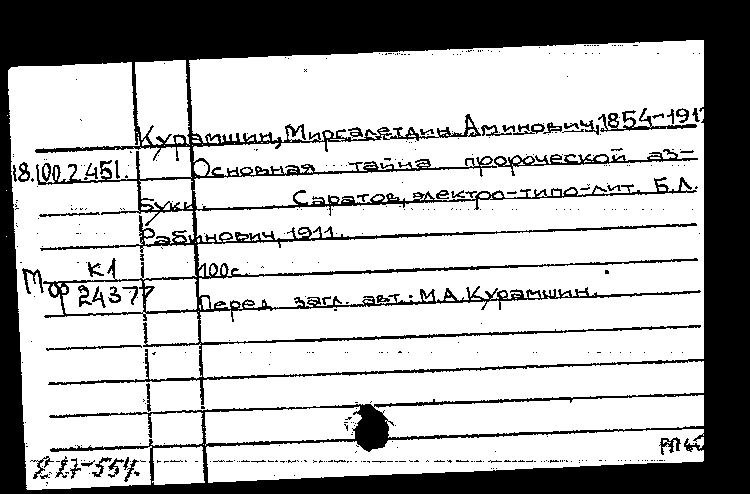 Курамшин, Миргалетдин Аминович, 1854-191
18.100.2.451. Основная тайна пророческой аз-
буки. Саратов, электро-типо-лит. Б.А.
Рабинович, 1911.
К1 100с.
Мор 24377 Перед загл. авт.: М.А.Курамшин.
227-554.